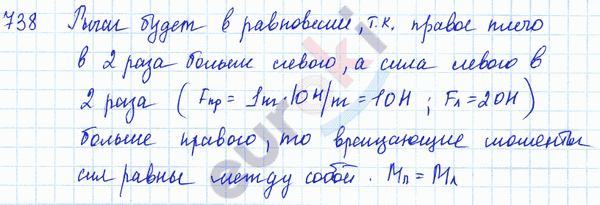 738 Рычаг будет в равновесии, т.к. правое плечо
в 2 раза больше левого, а сила левого в
2 раза (Fпр = 1кг·10Н/кг = 10Н ; Fл = 20Н)
больше правого, то вращающие моменты
сил равны между собой. Mп = Mл
euroki